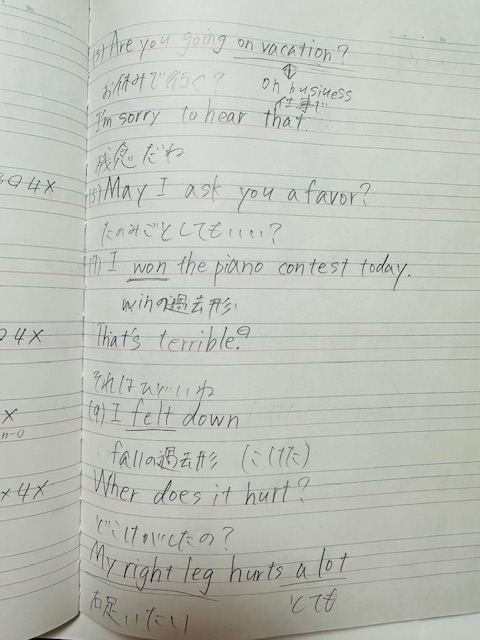 (13) Are you going on vacation?
お休みで行く?
on business
仕事で
I'm sorry to hear that.
残念だね
(15) May I ask you a favor?
たのみごとしてもいい?
(17) I won the piano contest today.
winの過去形
That's terrible.
それはひどいね
(19) I felt down
fallの過去形 (こけた)
Wher does it hurt?
どこけがしたの?
My right leg hurts a lot
右足いたい
とても
4X
4X
X
4X